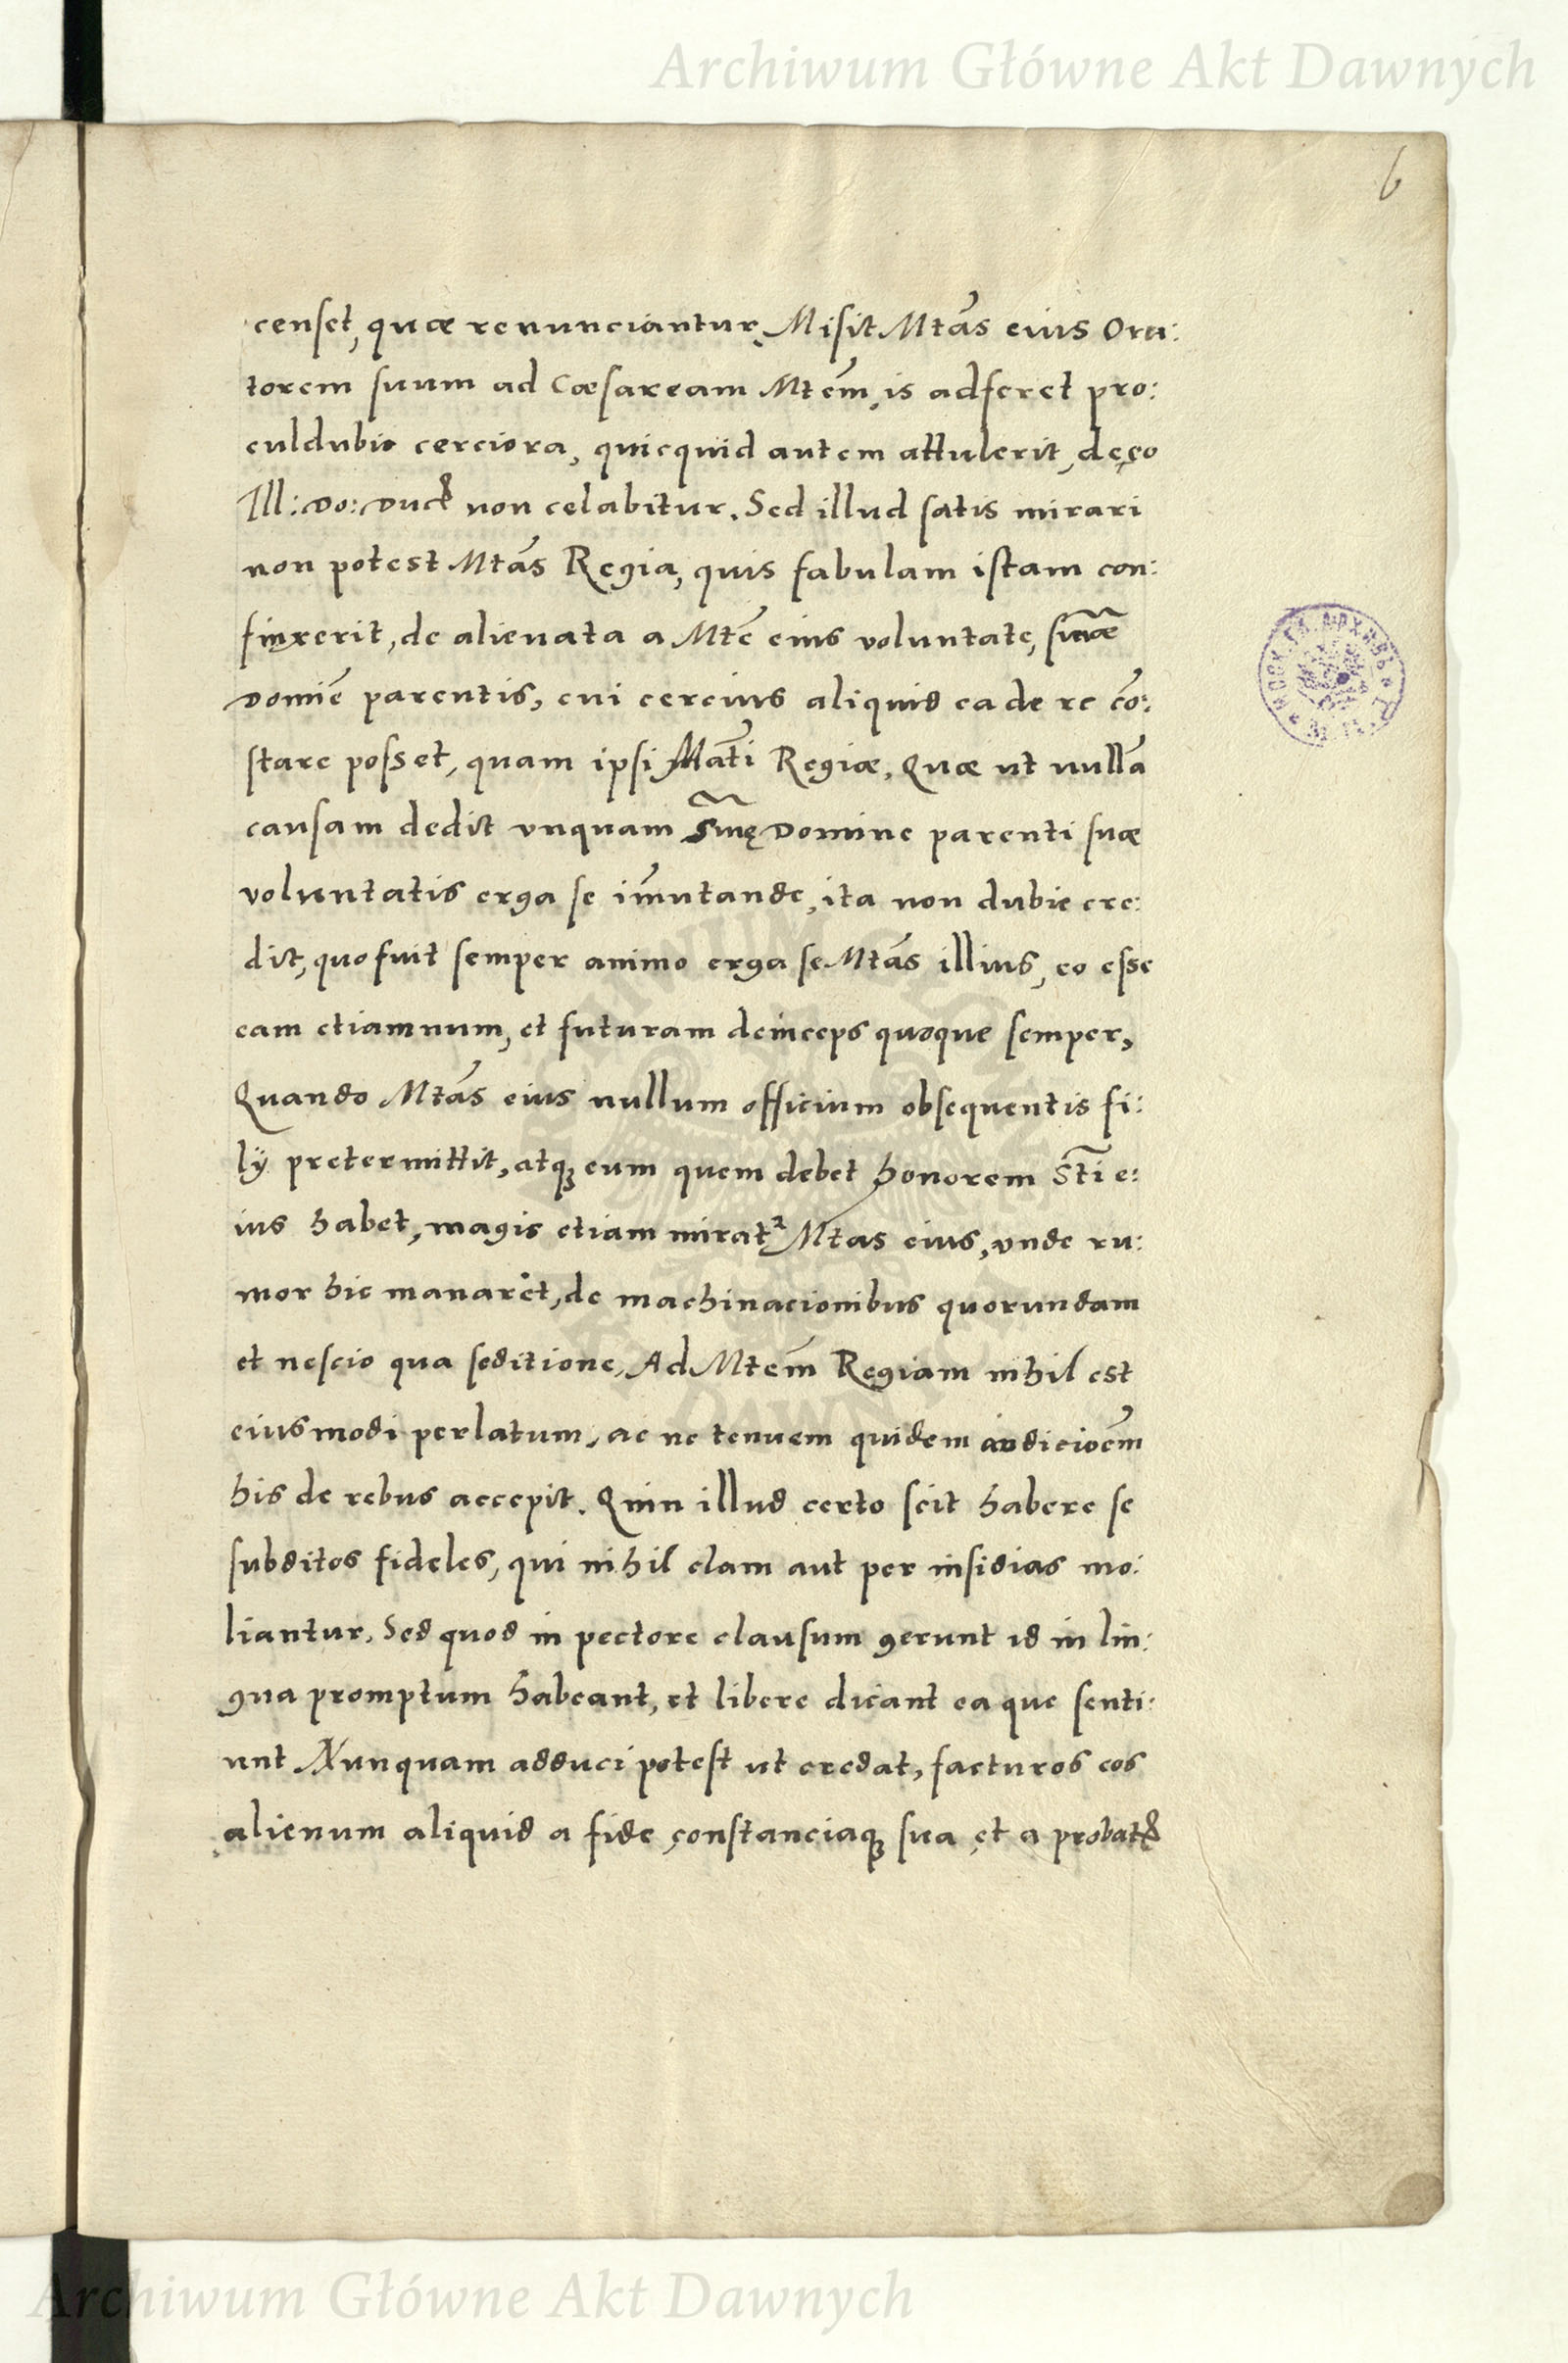 Archiwum Główne Akt Dawnych
6
censet, quæ renunciantur. Misit Mtãs eius Ora:
torem suum ad Cæsaream Mtẽm, is adferet pro:
culdubio cerciora, quicquid autem attulerit, de eo
Ill: Do: Duci non celabitur. Sed illud satis mirari
non potest Mtãs Regia, quis fabulam istam con:
finxerit, de alienata a Mtẽ eius voluntate, Sm̃æ
Domiẽ parentis, cui cercius aliquid ea de re cõ:
stare posset, quam ipsi Matĩ Regiæ. Quæ ut nullã
causam dedit vnquam Sm̃ę Domine parenti suæ
voluntatis erga se im̃utande, ita non dubie cre:
dit, quo fuit semper animo erga se Mtãs illius, eo esse
eam etiamnum, et futuram deinceps quoque semper,
Quando Mtãs eius nullum officium obsequentis fi:
lÿ pretermittit, atq̃ eum quem debet honorem St̃i e:
ius habet, magis etiam mirat᷑ Mtas eius, vnde ru:
mor hic manaret, de machinacionibus quorundam
et nescio qua seditione. Ad Mtẽm Regiam nihil est
eiusmodi perlatum, ac ne tenuem quidem
his de rebus accepit. Quin illud certo scit habere se
subditos fideles, qui nihil clam aut per insidias mo:
liantur, Sed quod in pectore clausum gerunt id in lin:
gua promptum habeant, et libere dicant ea que senti:
unt Nunquam adduci potest ut credat, facturos eos
alienum aliquid a fide constanciaq̃ sua et a
Archiwum Główne Akt Dawnych